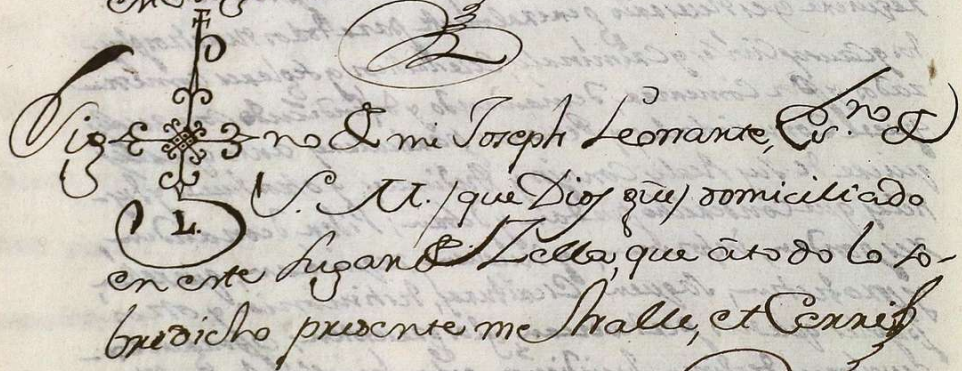 Sig no de mi Joseph Leonante, Es.no de
L.
S. M. (que Dios gūe) domiciliado
en este Lugar de Zella, que á todo lo so-
bredicho presente me halle, et Cerré